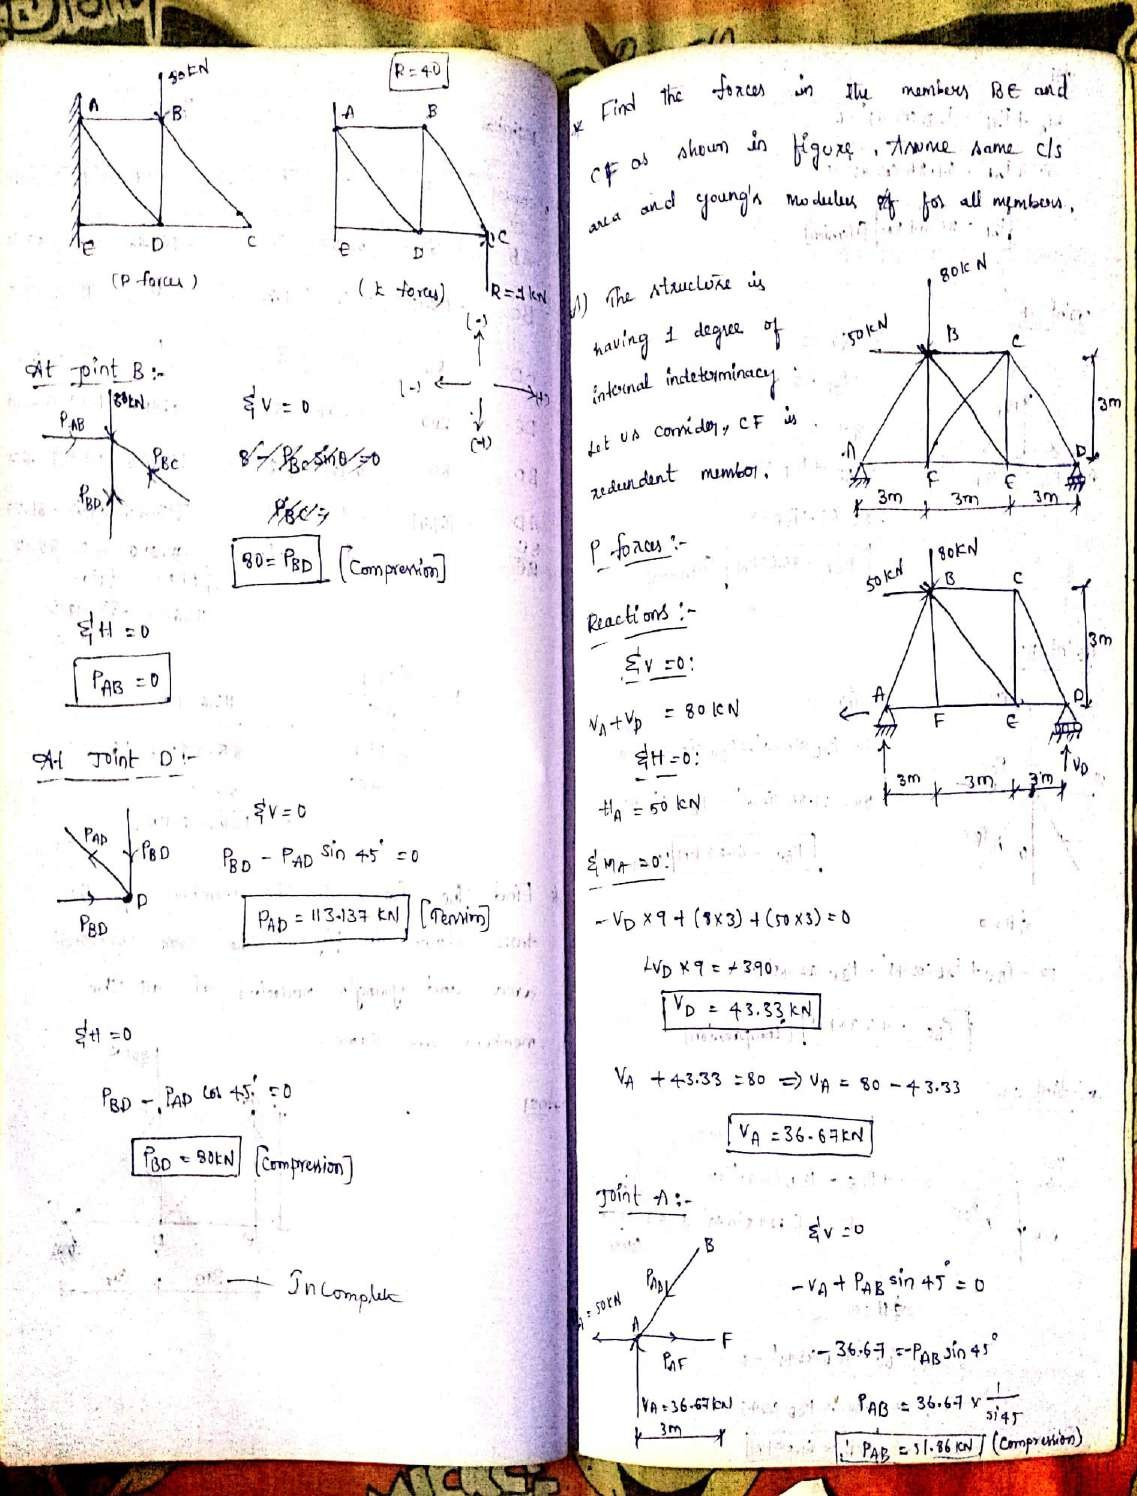 80KN
A
B
E
D
C
(P forces)
R=40
A
B
E
D
C
(k forces)
R=1KN
(-)
(-)
(+)
(+)
At joint B :-
80KN
PAB
PBC
PBD
ΣV = 0
80 = PBD [Compression]
ΣH = 0
PAB = 0
At Joint D :-
PAD
PBD
D
PBD
ΣV = 0
PBD - PAD sin 45° = 0
PAD = 113.137 KN [Tension]
ΣH = 0
PBD - PAD cos 45° = 0
PBD = 80KN [Compression]
Incomplete
* Find the forces in the members BE and
CF as shown in figure. Assume same c/s
area and young's modulus of for all members.
A) The structure is
having 1 degree of
internal indeterminacy.
Let us consider, CF is
redundent member.
80KN
50KN
B
C
3m
A
F
E
D
3m
3m
3m
P forces :-
Reactions :-
ΣV = 0:
VA + VD = 80 KN
ΣH = 0:
HA = 50 KN
80KN
50KN
B
C
3m
A
F
E
D
VD
3m
3m
3m
ΣMA = 0:
- VD × 9 + (8×3) + (50×3) = 0
∠VD × 9 = + 390
VD = 43.33 KN
VA + 43.33 = 80 => VA = 80 - 43.33
VA = 36.67KN
Joint A :-
B
PAD
A = 50KN
A
F
PAF
VA = 36.67KN
3m
ΣV = 0
- VA + PAB sin 45° = 0
- 36.67 = -PAB sin 45°
PAB = 36.67 × 1/si45
PAB = 51.86 KN (Compression)